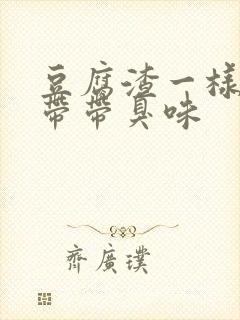 豆腐渣一樣
帶帶臭味
齊廣璞